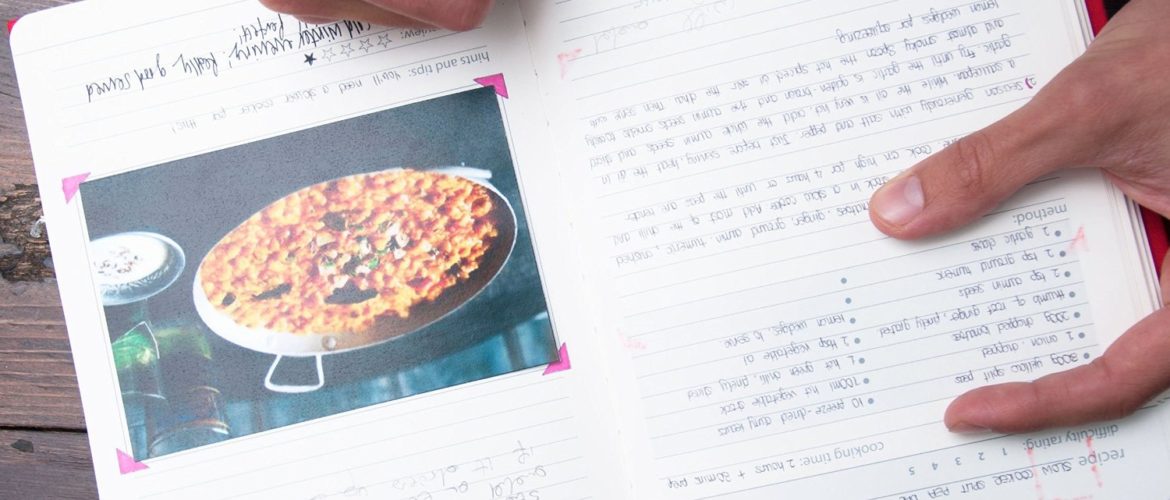 recipe SLOW COOKER SPLIT PEA
difficulty rating: 1 2 3 4 5
cooking time: 2 hours + 20mins prep
• 300g yellow split peas
• 1 onion, chopped
• 200g chopped tomatoes
• thumb of root ginger, finely grated
• 2 tsp cumin seeds
• 2 tsp ground turmeric
• 2 garlic cloves
• 10 freeze-dried curry leaves
• 700ml hot vegetable stock
• 1 hot green chilli, finely sliced
• 2 tbsp vegetable oil
• lemon wedges, to serve
method:
tomatoes, ginger, ground cumin, turmeric, crushed
stock in a slow cooker. Add most of the chilli and
cook on high for 4 hours or until the peas are tender
2) Season generously with salt and pepper. Just before serving, heat the oil in
a saucepan. While the oil is very hot, add the whole cumin seeds and sliced
garlic. Fry until the garlic is golden brown and the cumin seeds smoke
and almost smoky. Spoon the hot spiced oil over the dhal. Then serve with
lemon wedges for squeezing
hints and tips: You'll need a slower cooker for this!
winter evening. Really good served
perfect!